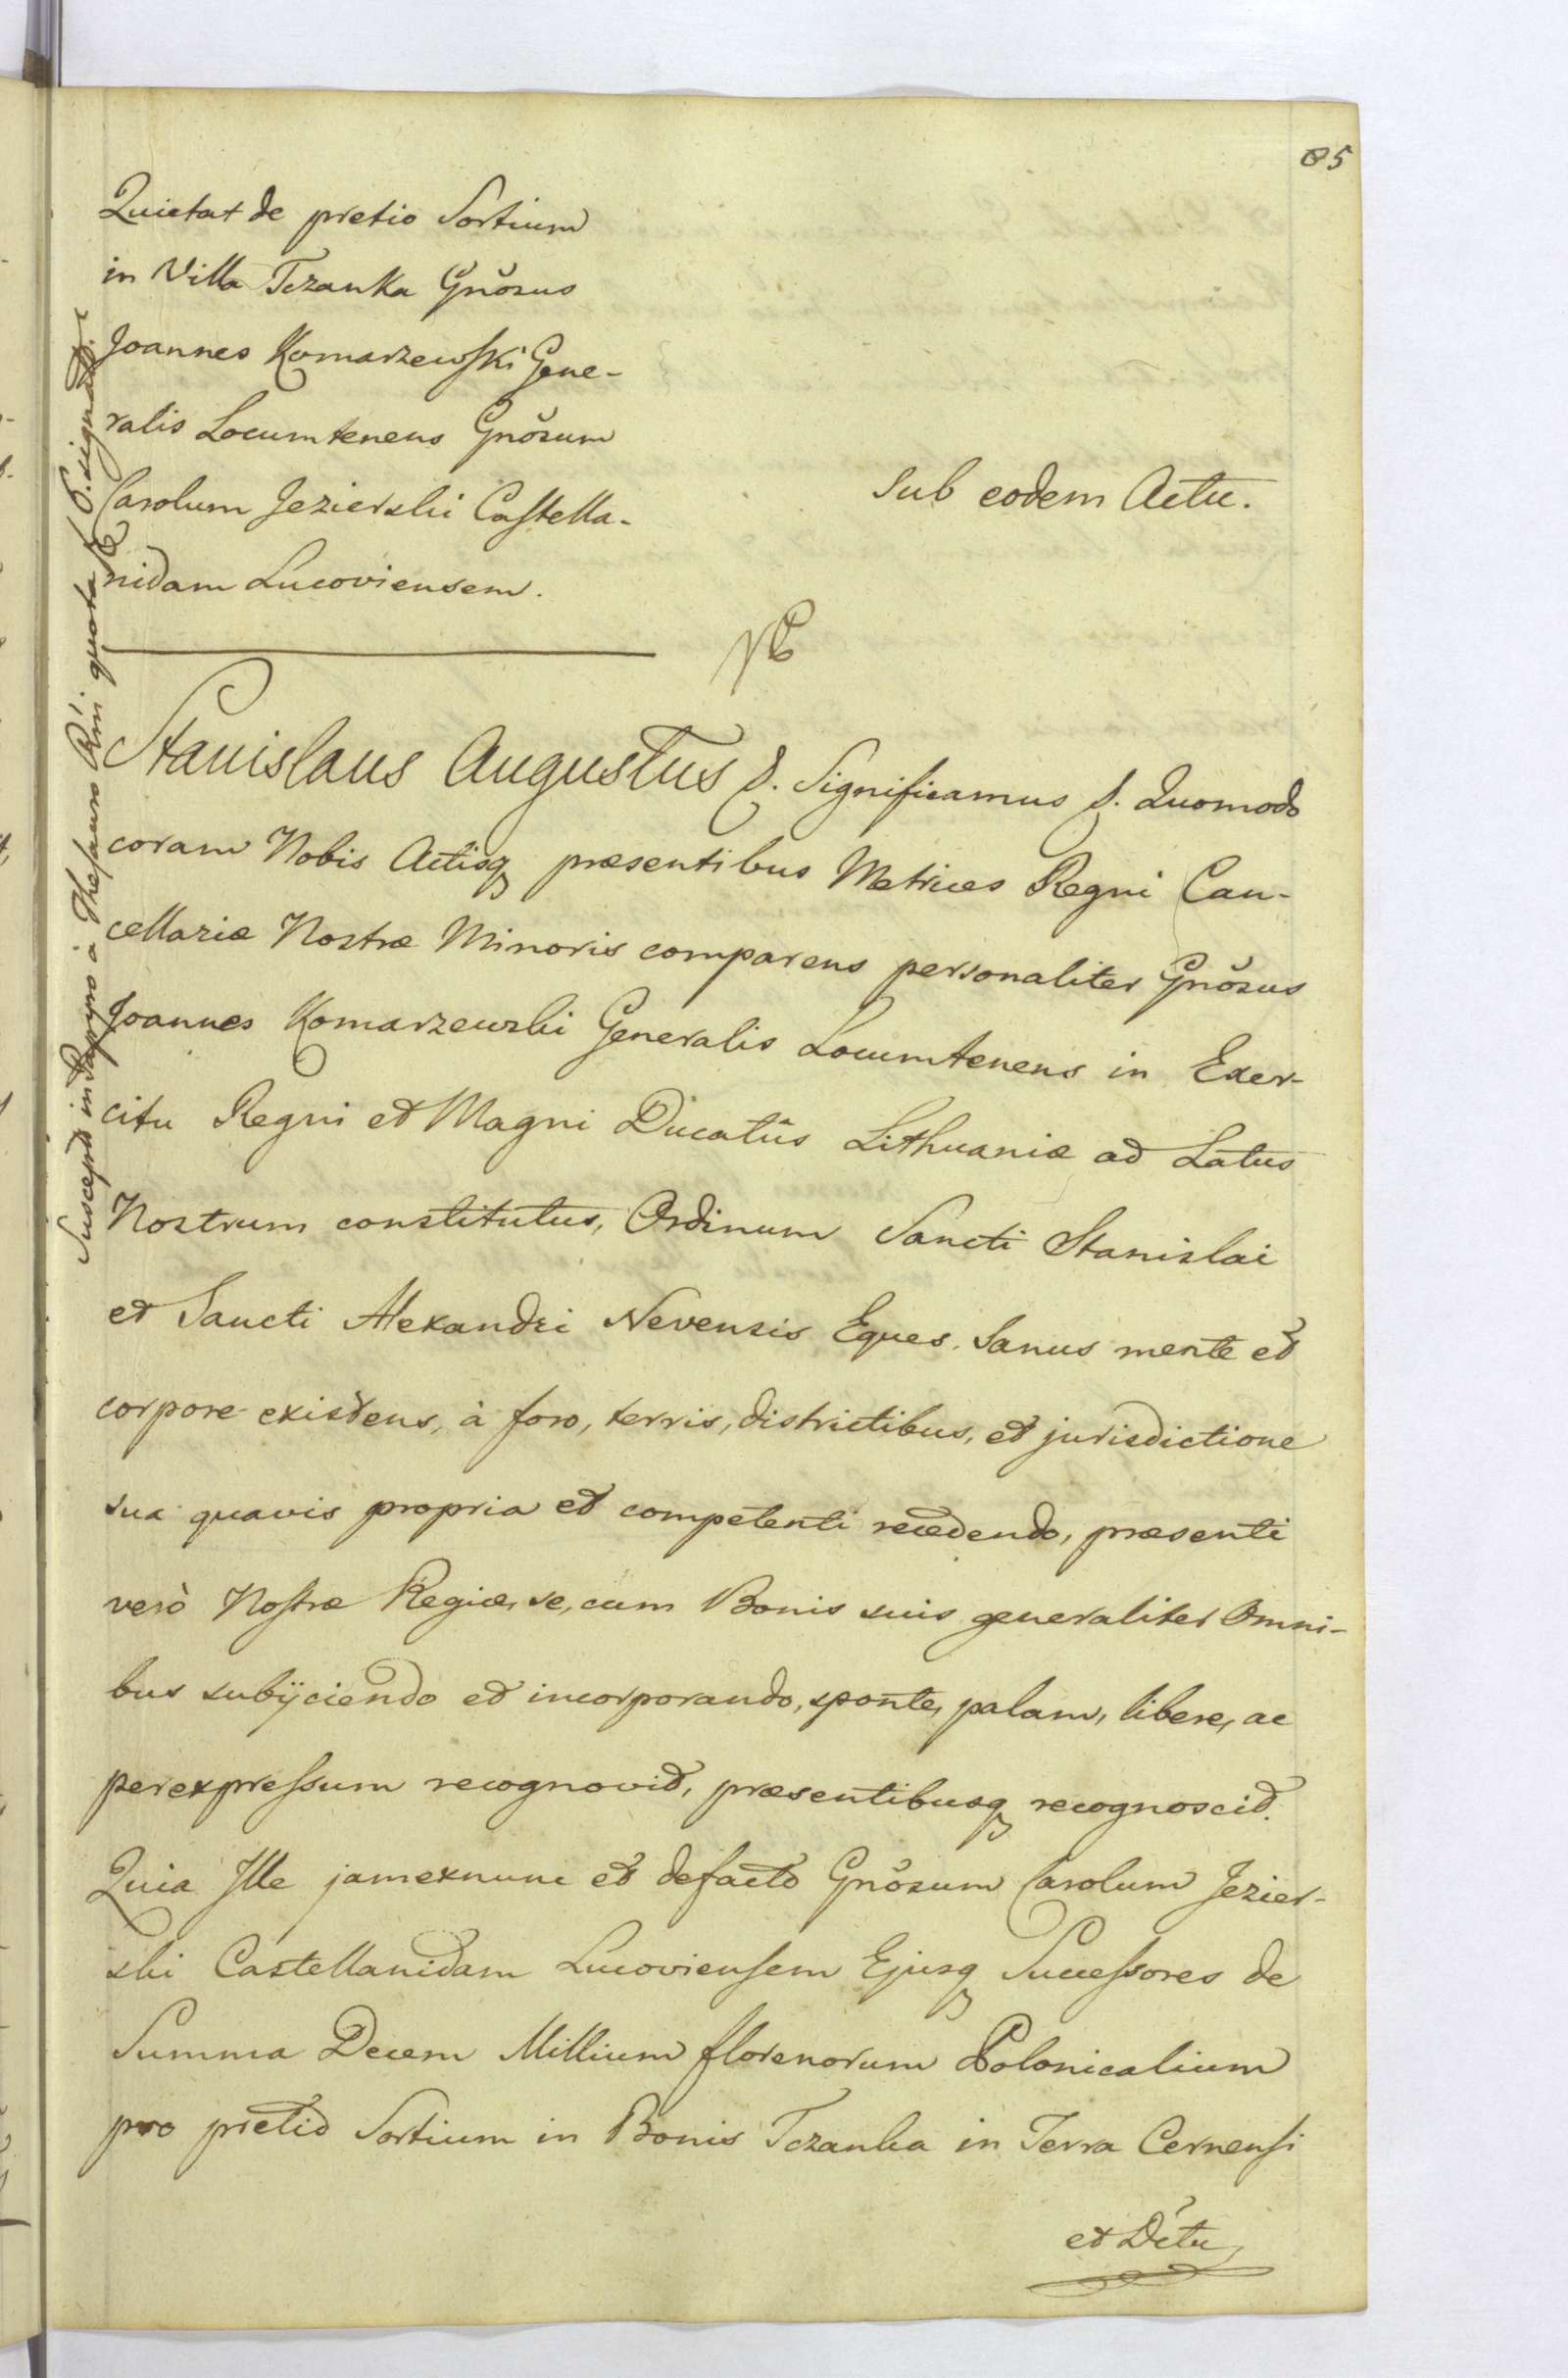 85
Quietat de pretio Sortium
in Villa Tczanka Gnŏsus
Joannes Komarzewski Gene-
ralis Locumtenens Gnŏsum
Carolum Jezierski Castella-
nidam Lucoviensem.
Sub eodem Actu.
Suscepta in Papyro à Thesauro Rni quota
signata
Stanislaus Augustus &. Significamus &. Quomodo
coram Nobis Actisq præsentibus Metrices Regni Can-
cellariæ Nostræ Minoris comparens personaliter Gnŏsus
Joannes Komarzewski Generalis Locumtenens in Exer-
citu Regni et Magni Ducatûs Lithuaniæ ad Latus
Nostrum constitutus, Ordinum Sancti Stanislai
et Sancti Alexandri Nevensis Eques, Sanus mente et
corpore existens, à foro, terris, districtibus, et jurisdictione
sua quavis propria et competenti recedendo, præsenti
verò Nostræ Regiæ, se, cum Bonis suis generaliter Omni-
bus subijciendo et incorporando, sponte, palam, libere, ac
perexpressum recognovit, præsentibusq recognoscit.
Quia Ille jamexnunc et defacto Gnŏsum Carolum Jezier-
ski Castellanidam Lucoviensem Ejusq Successores de
Summa Decem Millium florenorum Polonicalium
pro pretio Sortium in Bonis Tczanka in Terra Cernensi
et Dětu